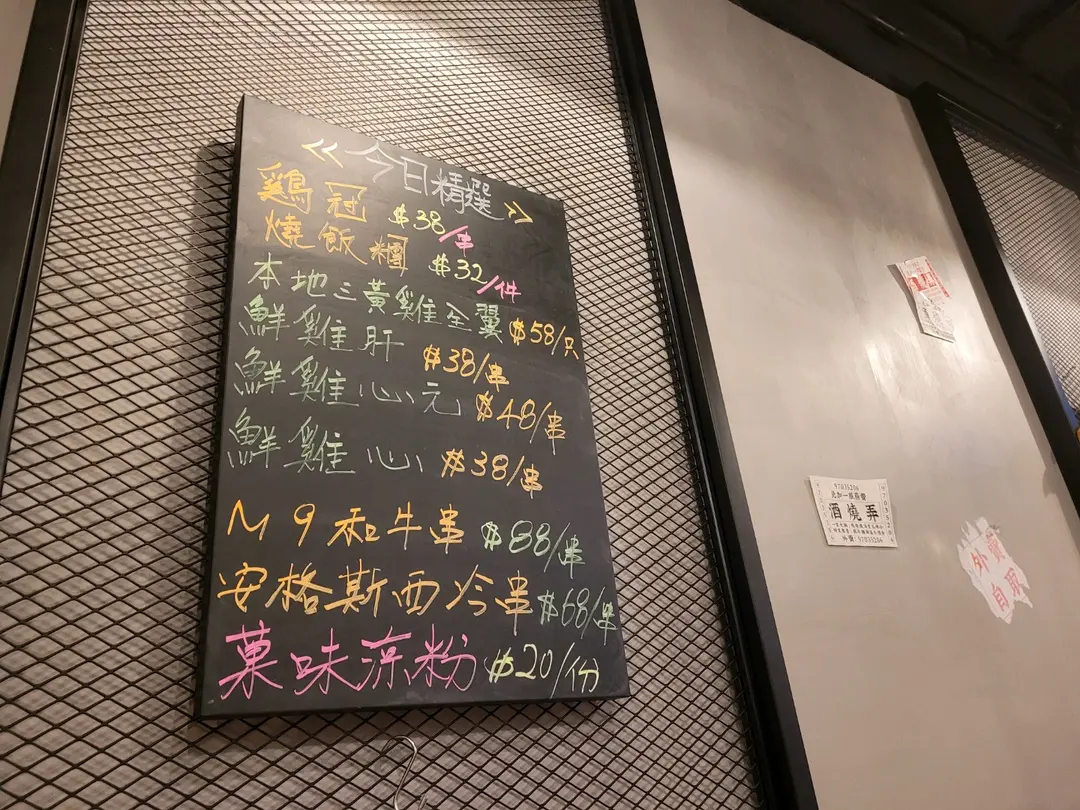 <<今日精選>>
鷄冠 $38/串
燒飯糰 $32/件
本地三黃雞全翼 $58/只
鮮雞肝 $38/串
鮮雞心元 $48/串
鮮雞心 $38/串
M9和牛串 $88/串
安格斯西冷串 $68/串
菓味涼粉 $20/份
97035206
酒燒弄
外賣:97035206
外賣
自取